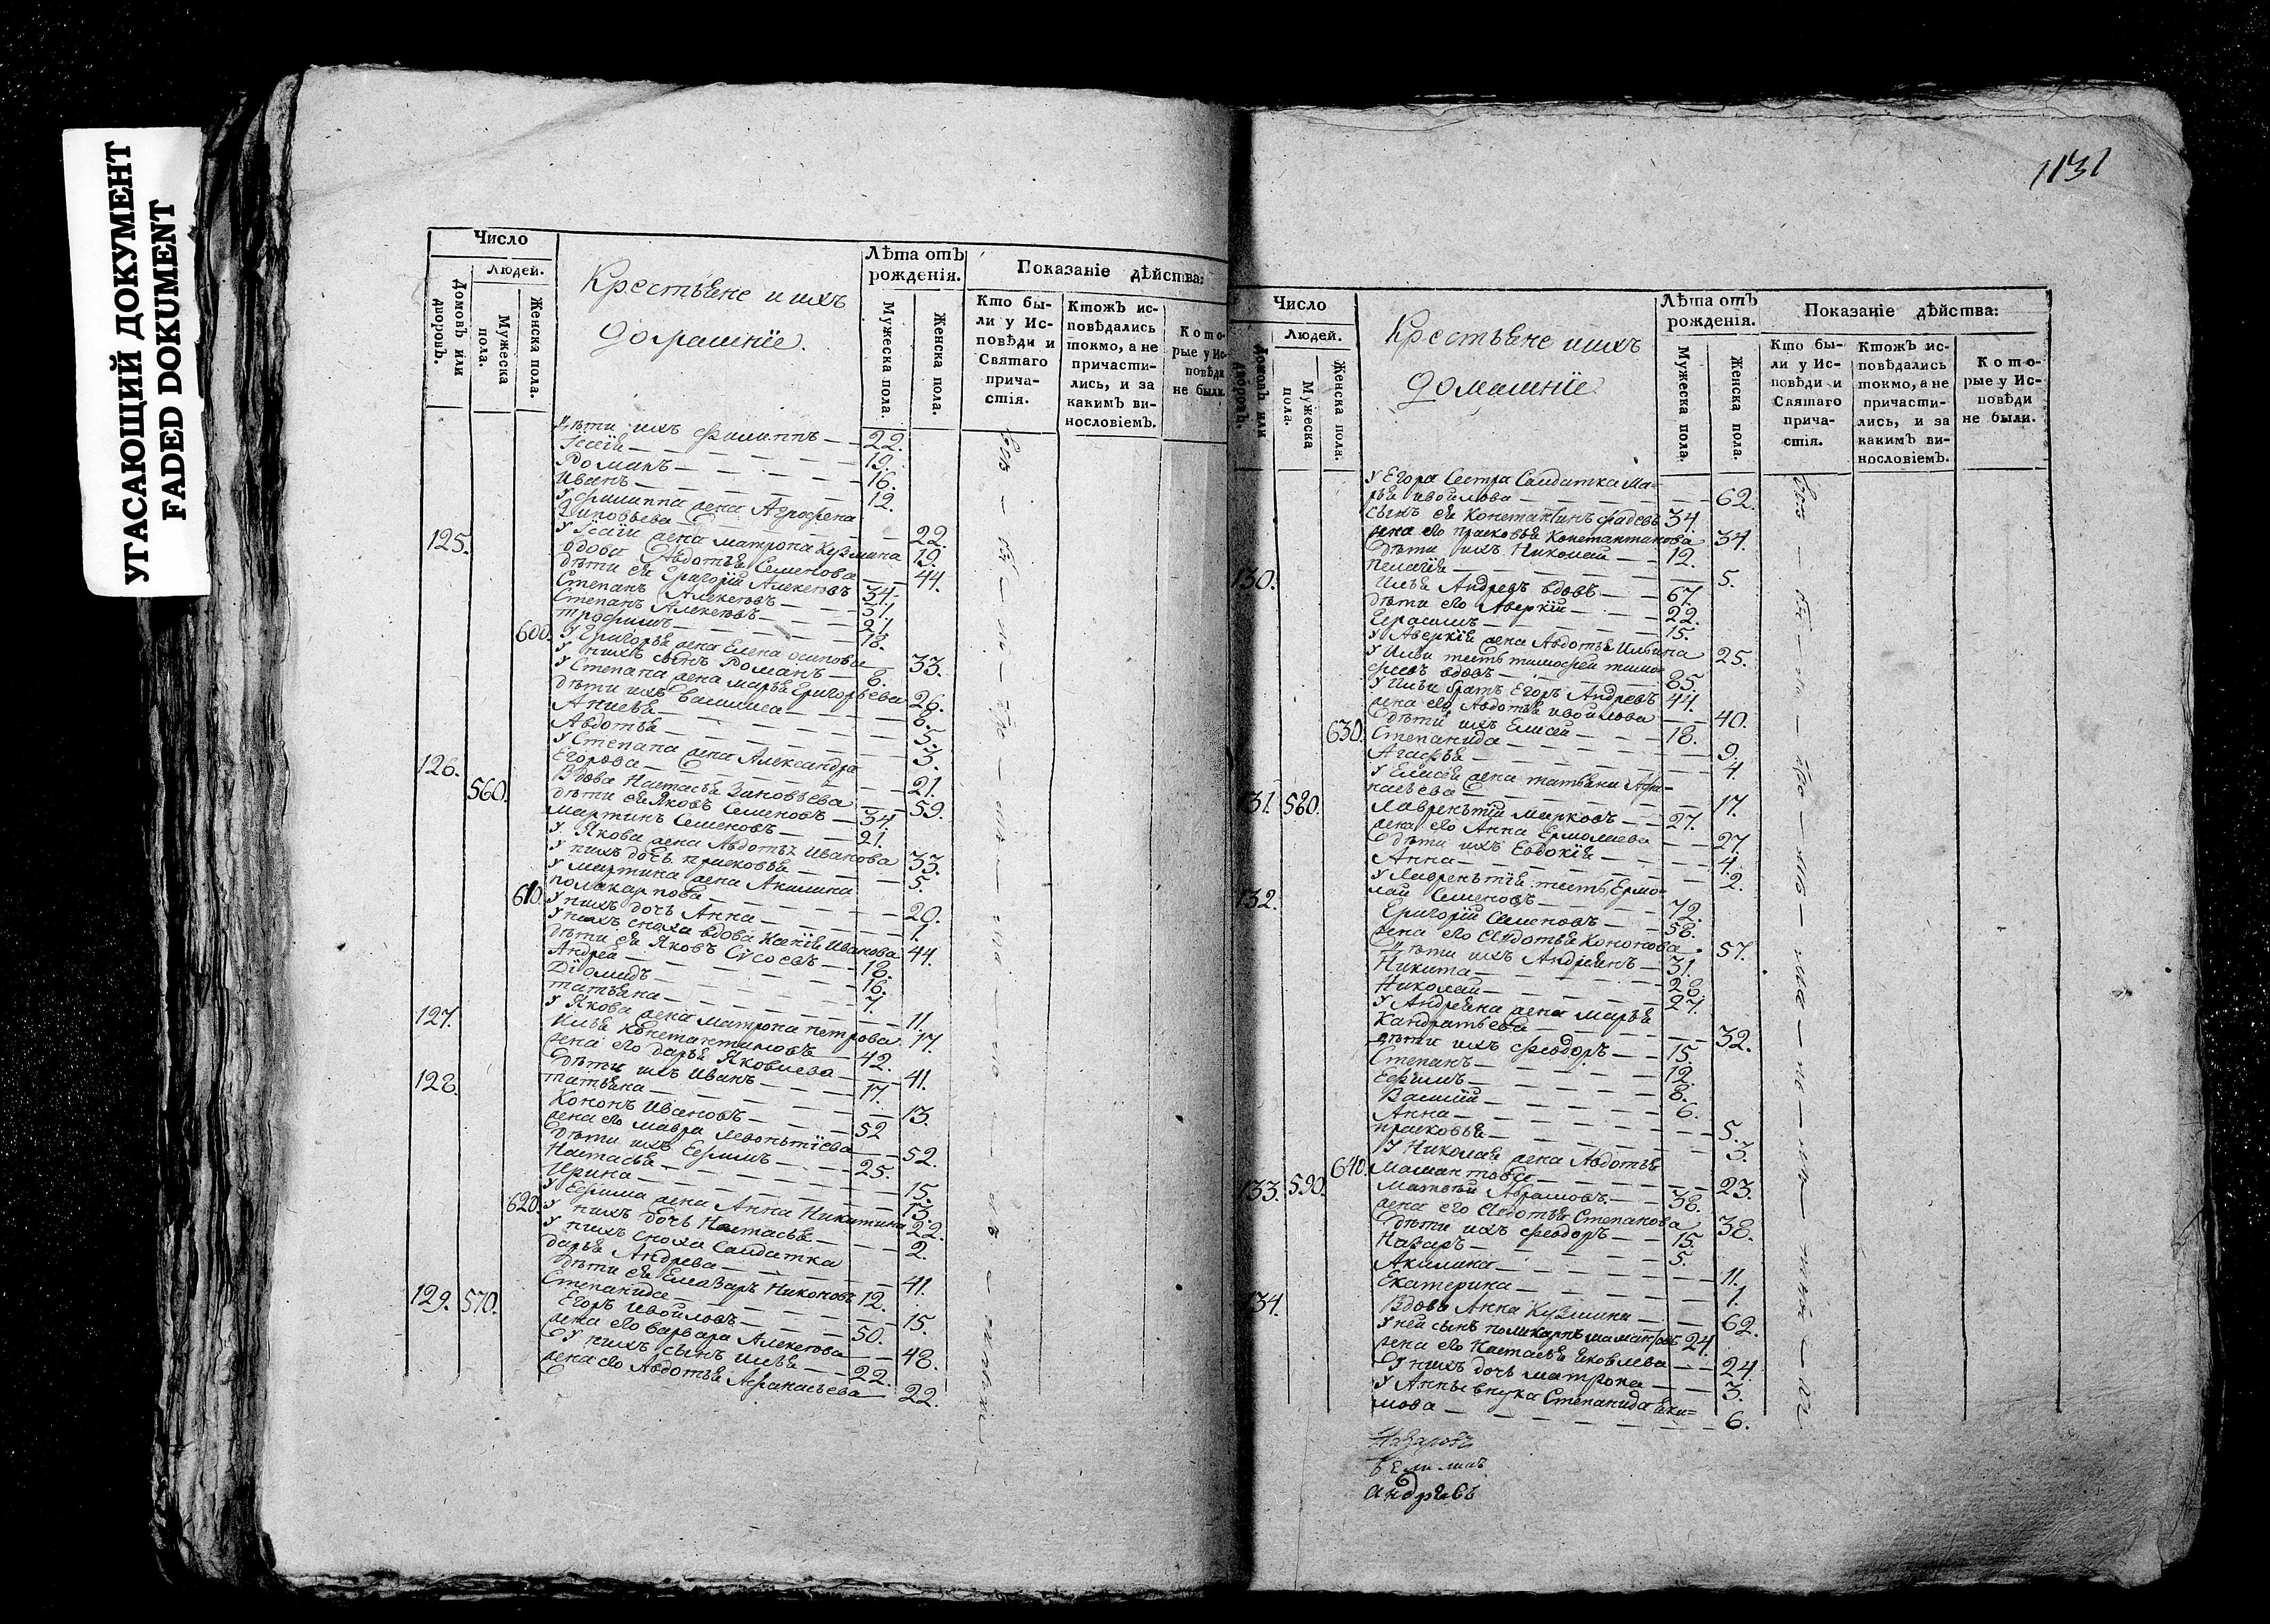 УГАСАЮЩИЙ ДОКУМЕНТ
FADED DOKUMENT
Число
Людей.
Домовъ или дворовъ.
Мужеска пола.
Женска пола.
Крестьяне и ихъ
домашнїе.
Лѣта отъ рожденія.
Мужеска пола.
Женска пола.
Показаніе дѣйства:
Кто были у Исповѣди и Святаго причастія.
Ктожъ исповѣдались токмо, а не причастились, и за какимъ винословіемъ.
Которые у Исповѣди не были.
Дѣти ихъ Филиппъ — 22.
Ісаїя — 19.
Романъ — 16.
Иванъ — 12.
У Филиппа жена Агрофена
Зиновьева — 22.
У Ісаїи жена Матрона Кузмина 19.
125. Вдова Авдотья Семенова 44.
дѣти ея Григорїй Алексѣевъ 34.
Степанъ Алексѣевъ — 31.
Степанъ Алексѣевъ — 21.
Трофимъ — 18.
600. У Григорья жена Елена Осипова 33.
У нихъ сынъ Романъ — 8.
У Степана жена Марья Григорьева 26.
дѣти ихъ Василиса — 8.
Анисья — 5.
Авдотья — 3.
У Степана жена Александра
Егорова — 21.
126. Вдова Настасья Зиновьева 59.
560. дѣти ея Яковъ Семеновъ — 34.
Мартинъ Семеновъ — 21.
У Якова жена Авдотья Иванова 33.
У нихъ дочь Прасковья — 5.
У Мартина жена Акилина
610. Поликарпова — 20.
У нихъ дочь Анна — 1.
У нихъ сноха вдова Ксенїя Иванова 44.
дѣти ея Яковъ Сусоевъ — 18.
Андрей — 16.
Дїомидъ — 7.
Татьяна — 11.
У Якова жена Матрона Петрова 17.
127. Илья Константиновъ — 42.
жена его Дарья Яковлева — 41.
дѣти ихъ Иванъ — 17.
Татьяна — 13.
128. Кононъ Ивановъ — 52
жена его Мавра Леонтїева — 52.
дѣти ихъ Ефимъ — 25.
Настасья — 15.
Ирина — 13.
У Ефима жена Анна Никитина 22.
620. У нихъ дочь Настасья — 2.
У нихъ сноха Салдатка
Дарья Андрева — 41.
дѣти ея Елеазаръ Никоновъ 12.
Степанида — 15.
129. 570. Егоръ Ивойловъ — 50.
жена его Варвара Алексѣева 48.
У нихъ сынъ Илья — 22.
жена его Авдотья Афанасьева 22.
1131
Число
Людей.
Домовъ или дворовъ.
Мужеска пола.
Женска пола.
Крестьяне и ихъ
домашнїе
Лѣта отъ рожденія.
Мужеска пола.
Женска пола.
Показаніе дѣйства:
Кто были у Исповѣди и Святаго причастія.
Ктожъ исповѣдались токмо, а не причастились, и за какимъ винословіемъ.
Которые у Исповѣди не были.
У Егора Сестра Салдатка Ма=
рья Ивойлова — 62.
сынъ ея Константинъ Фадевъ 34.
жена его Прасковья Константинова 34.
дѣти ихъ Николай — 12.
Пелагїя — 5.
130. Илья Андревъ вдовъ — 67.
дѣти его Аверкїй — 22.
Герасимъ — 15.
У Аверкїя жена Авдотья Ильина 25.
У Ильи тесть Тимофей Тимо=
феевъ вдовъ — 85.
У Ильи братъ Егоръ Андревъ 44.
жена его Авдотья Ивойлова — 40.
дѣти ихъ Елисей — 18.
630. Степанида — 9.
Агафья — 4.
У Елисея жена Татьяна Афа=
насьева — 17.
131. 580. Лаврентїй Марковъ — 27.
жена его Анна Ермолаева — 27
дѣти ихъ Евдокїя — 4.
Анна — 2.
У Лаврентїя тесть Ермо=
лай Семеновъ — 72.
132. Григорїй Семеновъ — 58.
жена его Авдотья Кононова 57.
Дѣти ихъ Андреянъ — 31.
Никита — 28
Николай — 27.
У Андреяна жена Марья
Кандратьева — 32.
дѣти ихъ Феодоръ — 15.
Степанъ — 12.
Ефимъ — 8.
Василїй — 6.
Анна — 5.
Прасковья — 3.
У Николая жена Авдотья
640. Мамантова — 23.
133. 590. Матвей Абрамовъ — 38.
жена его Авдотья Степанова 38.
дѣти ихъ Феодоръ — 15.
Назаръ — 5.
Акилина — 11.
Екатерина — 1.
134. Вдова Анна Кузмина — 62.
У ней сынъ Поликарпъ Мамантовъ 24.
жена его Настасья Яковлева — 24.
У нихъ дочь Матрона — 3.
У Анны внука Степанида Яки=
мова — 6.
Андрѣевъ